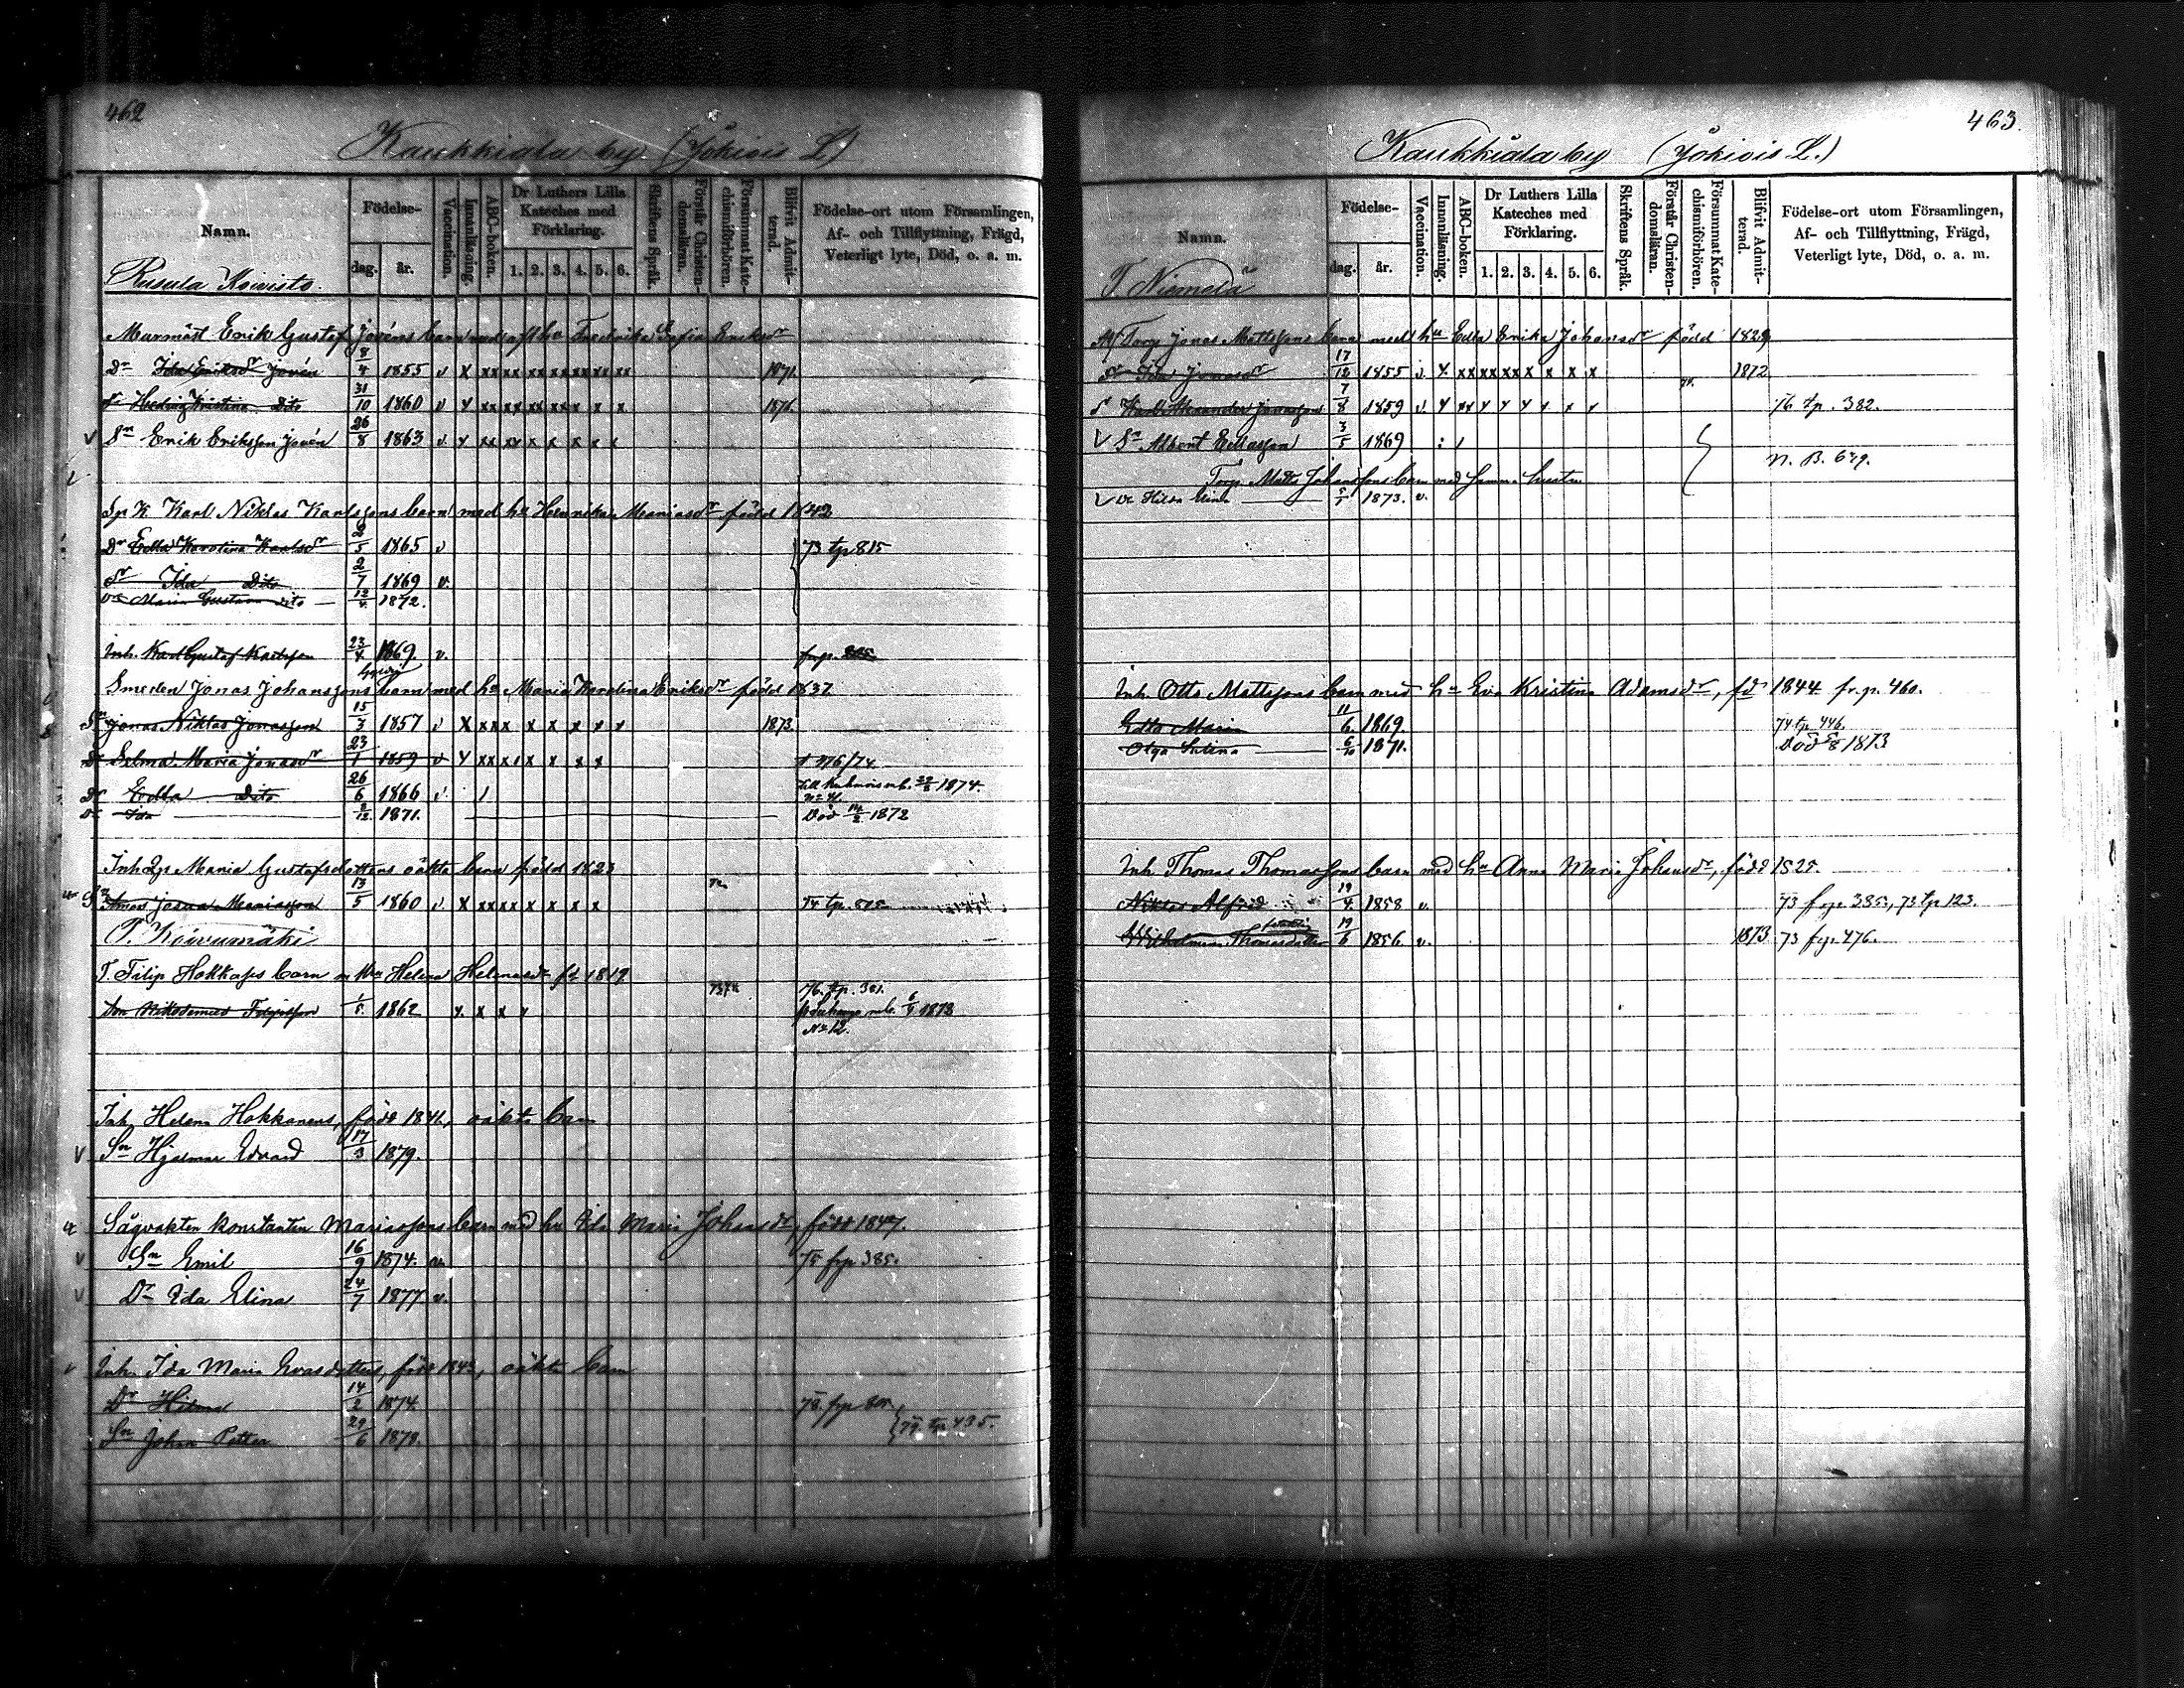 462
Kaukkiala by (Jokiois L)
Namn.
Födelse-
dag. år.
Vaccination.
Innanläsning.
ABC-boken.
Dr Luthers Lilla Kateches med Förklaring.
1. 2. 3. 4. 5. 6.
Skriftens Språk.
Förstår Christendomsläran.
Försummat Katechismiförhören.
Blifvit Admitterad.
Födelse-ort utom Församlingen, Af- och Tillflyttning, Frägd, Veterligt lyte, Död, o. a. m.
Rusula Koivisto.
Murmäst Erik Gustaf Jovéns barn med Fredrika Sofia Eriksdr
Dr Ida Eriksdr Jovén 8/4 1855 v x xx xx xx xx xx xx xx 1871.
Dr Hedvig Kristina Dito 31/10 1860 v x xx xx xx xx x x x 1876.
v Sn Erik Eriksson Jovén 26/8 1863 v x xx xx x x x x x
Karl Niklas Karlssons barn med hu Henrika Mariasdr född 1842
Dr Edla Karolina Karlsdr 2/5 1865 v 73 tp 815
Dr Ida Dito 2/7 1869 v.
Dr Maria Gustava dito 12/4 1872.
Inh. Karl Gustaf Karlsson 23/4 1869 v. fr. p.
Smeden Jonas Johanssons barn med hu Maria Karolina Eriksdr född 1837.
Sn Jonas Niklas Jonasson 15/3 1857 v x xx x x x x x x 1873.
Dr Selma Maria Jonasdr 23/1 1859 v x xx x x x x x
Dr Edla Dito 26/6 1866 v / 1874.
Dr Ida 2/12 1871. Död 14/2 1872
Inh Maria Gustafsdotters oäkta barn född 1823
Sn Amos Jonas Mariasson 13/5 1860 v x xx xx x x x x
T. Koivumäki
T. Filip Hokkas barn m hu Helena Helenasdr fd 1819
Son Nikodemus Filipsson 1/5 1862 x x x x 76. tp. 381.
1873
No 12.
Inh Helena Hokkanens, född 1841, oäkta barn
v Sn Hjalmar Edvard 17/3 1879.
Sågvakten Konstantin Mariassons barn med hu Ida Maria Johansdr, född 1847.
v Sn Emil 16/9 1874. 75 frp 385.
v Dr Ida Elina 24/7 1877. v.
v Inh. Ida Maria Evasdotters, född oäkta barn
Dr Hilma 14/2 1874 78. frp
Sn Johan Petter 29/6 1878. 79 tp 435.
463.
Kaukkiala by (Jokiois L.)
Namn.
Födelse-
dag. år.
Vaccination.
Innanläsning.
ABC-boken.
Dr Luthers Lilla Kateches med Förklaring.
1. 2. 3. 4. 5. 6.
Skriftens Språk.
Förstår Christendomsläran.
Försummat Katechismiförhören.
Blifvit Admitterad.
Födelse-ort utom Församlingen, Af- och Tillflyttning, Frägd, Veterligt lyte, Död, o. a. m.
T. Niemelä
Torp Jonas Mattssons barn med hu Edla Erika Johansdr född 1829
Dr Ida Jonasdr 17/12 1855 v. x xx xx xx x x x x 1872
S Karl Alexander Jonasson 7/8 1859 v. x xx x x x x x x 76 tp. 382.
v Sn Albert Edlasson 3/5 1869 : /
N. B. 679.
Torp. Matts Johanssons barn med samma hustru
v Dr Hilda Elina 1873. v.
Inh. Otto Mattssons barn med hu Eva Kristina Adamsdr, fd 1844 fr. p. 460.
Edla Maria 11/6 1869. 74 tp. 446.
Olga Selina 6/10 1871. Död 1873
Inh Thomas Thomassons barn med hu Anna Maria Johansdr, född 1825.
Niklas Alfrid 19/4 1858 v. 73 frp 385, 73 tp 123.
Wilhelmina Thomasdotter 19/6 1856. v. 1873 73 frp. 476.